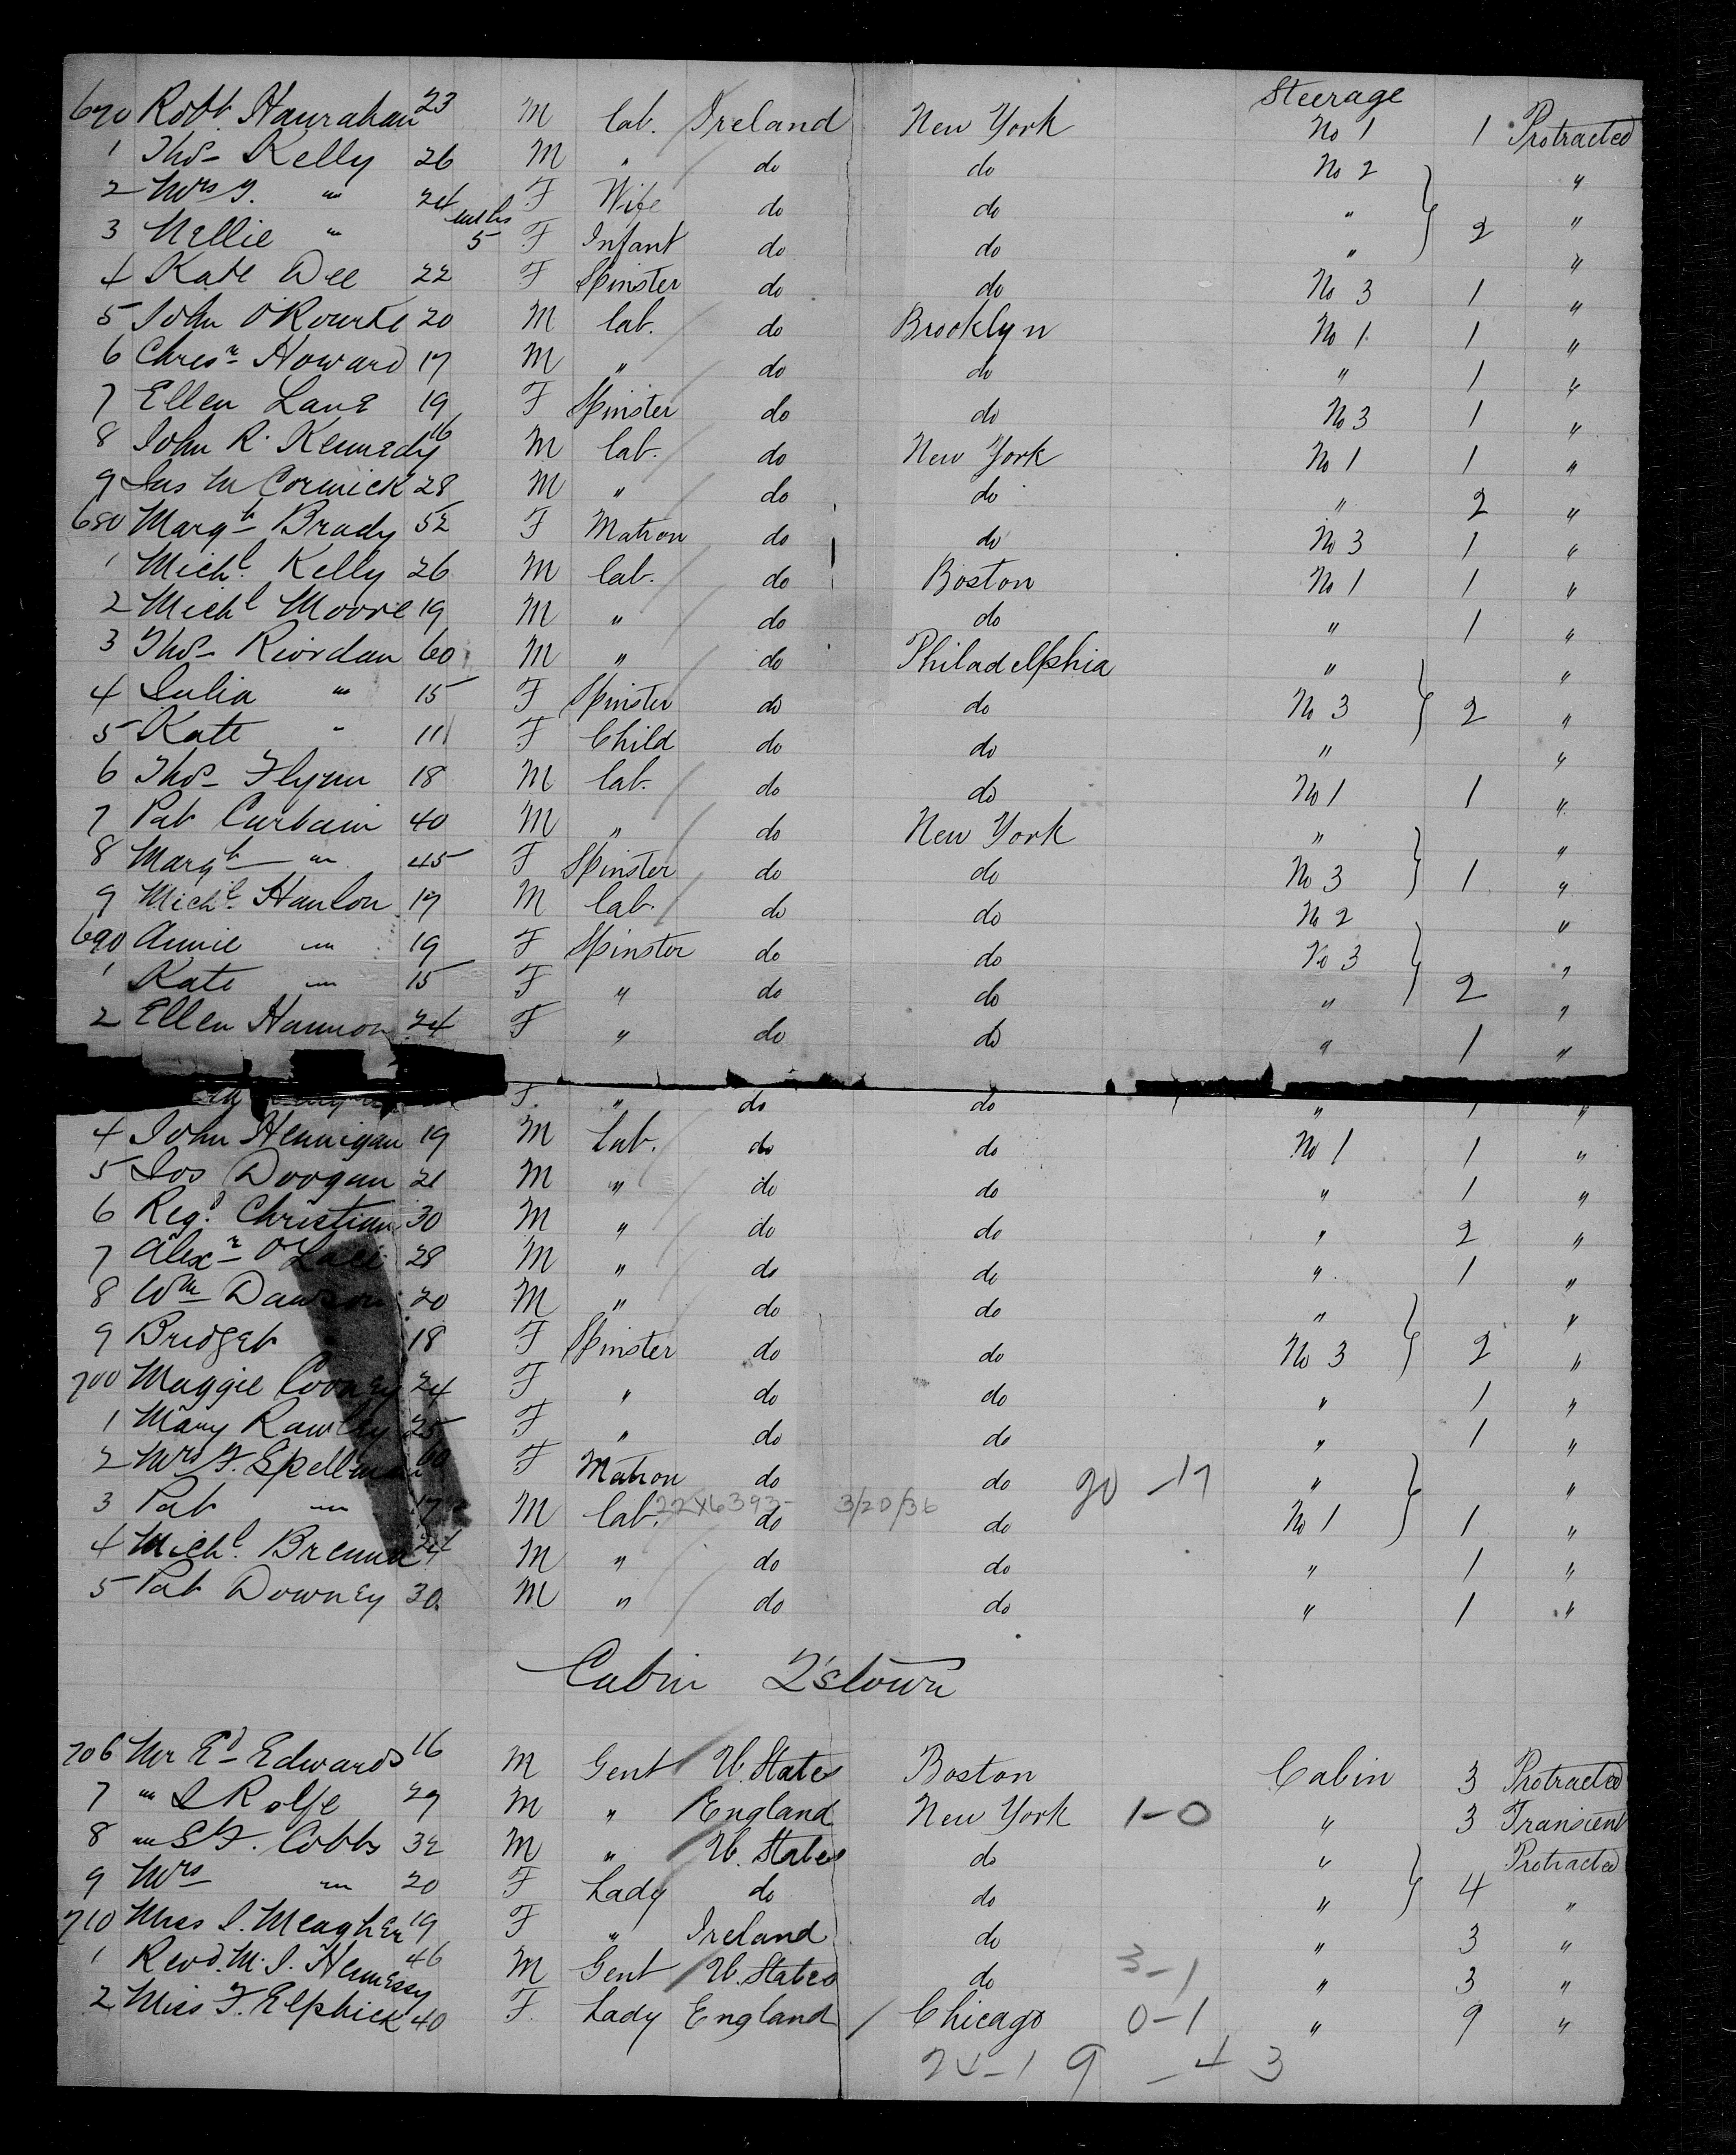 Steerage
670 Robt. Hanrahan 23 M lab. Ireland New York No 1 1 Protracted
1 Thos Kelly 26 M " do do No 2 "
2 Mrs T. " 24 F Wife do do " "
3 Nellie " mths 5 F Infant do do " 2 "
4 Kate Dee 22 F Spinster do do No 3 1 "
5 John O'Rourke 20 M lab. do Brooklyn No 1 1 "
6 Chresr Howard 17 M " do do " 1 "
7 Ellen Lane 19 F Spinster do do No 3 1 "
8 John R. Kennedy 16 M lab. do New York No 1 1 "
9 Jas McCormick 28 M " do do " 2 "
680 Margt Brady 52 F Matron do do No 3 1 "
1 Michl. Kelly 26 M lab. do Boston No 1 1 "
2 Michl Moore 19 M " do do " 1 "
3 Thos Riordan 60 M " do Philadelphia " "
4 Julia " 15 F Spinster do do No 3 2 "
5 Kate " 11 F Child do do " "
6 Thos Flynn 18 M lab. do do No 1 1 "
7 Pat Curtain 40 M " do New York " "
8 Margt " 45 F Spinster do do No 3 1 "
9 Michl Hanlon 17 M lab. do do No 2 "
690 Annie " 19 F Spinster do do No 3 "
1 Kate " 15 F " do do " 2 "
2 Ellen Hannon 24 F " do do " 1 "
F. " do do " 1 "
4 John Hennigan 19 M Lab. do do No 1 1 "
5 Jos Doogan 21 M " do do " 1 "
6 Regd. Christian 30 M " do do " 2 "
7 Alexr 28 M " do do " 1 "
8 Wm Dawson 20 M " do do " "
9 Bridget " 18 F Spinster do do No 3 2 "
700 Maggie Cooney 24 F " do do " 1 "
1 Mary Rawley 25 F " do do " 1 "
2 Mrs F. Spellman 60 F Matron do do 20 - 17 " "
3 Pat " 17 M lab. 22X6393- do 3/20/36 do No 1 1 "
4 Michl. Brennan 24 M " do do " 1 "
5 Pat Downey 30. M " do do " 1 "
Cabin Q'stown
706 Mr Ed Edwards 16 M Gent U. States Boston Cabin 3 Protracted
7 " J Rolfe 29 M " England New York 1-0 " 3 Transient
8 " S F. Cobbs 32 M " U. States do " Protracted
9 Mrs " 20 F Lady do do " 4 "
710 Miss J. Meagher 19 F " Ireland do " 3 "
1 Revd. M. J. Hennessy 46 M Gent U. States do 3-1 " 3 "
2 Miss F. Elphick 40 F. Lady England Chicago 0-1 " 9 "
24-19 - 43